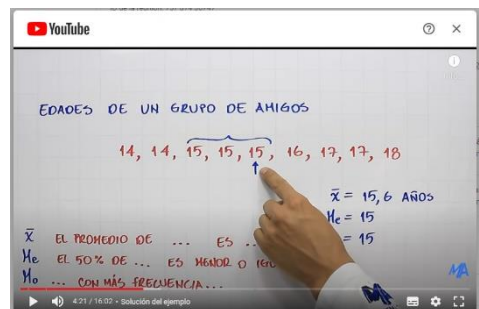 YouTube
EDADES DE UN GRUPO DE AMIGOS
14, 14, 15, 15, 15, 16, 17, 17, 18
x̄ = 15,6 AÑOS
Me = 15
= 15
x̄ EL PROMEDIO DE ... ES
Me EL 50% DE ... ES MENOR O
Mo ... CON MÁS FRECUENCIA...
MA
4:21 / 16:02 • Solución del ejemplo